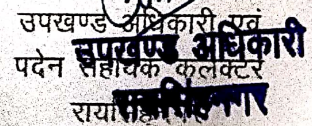 उपखण्ड अधिकारी एवं
उपखण्ड अधिकारी
पदेन सहायक कलेक्टर
रायसिंहनगर